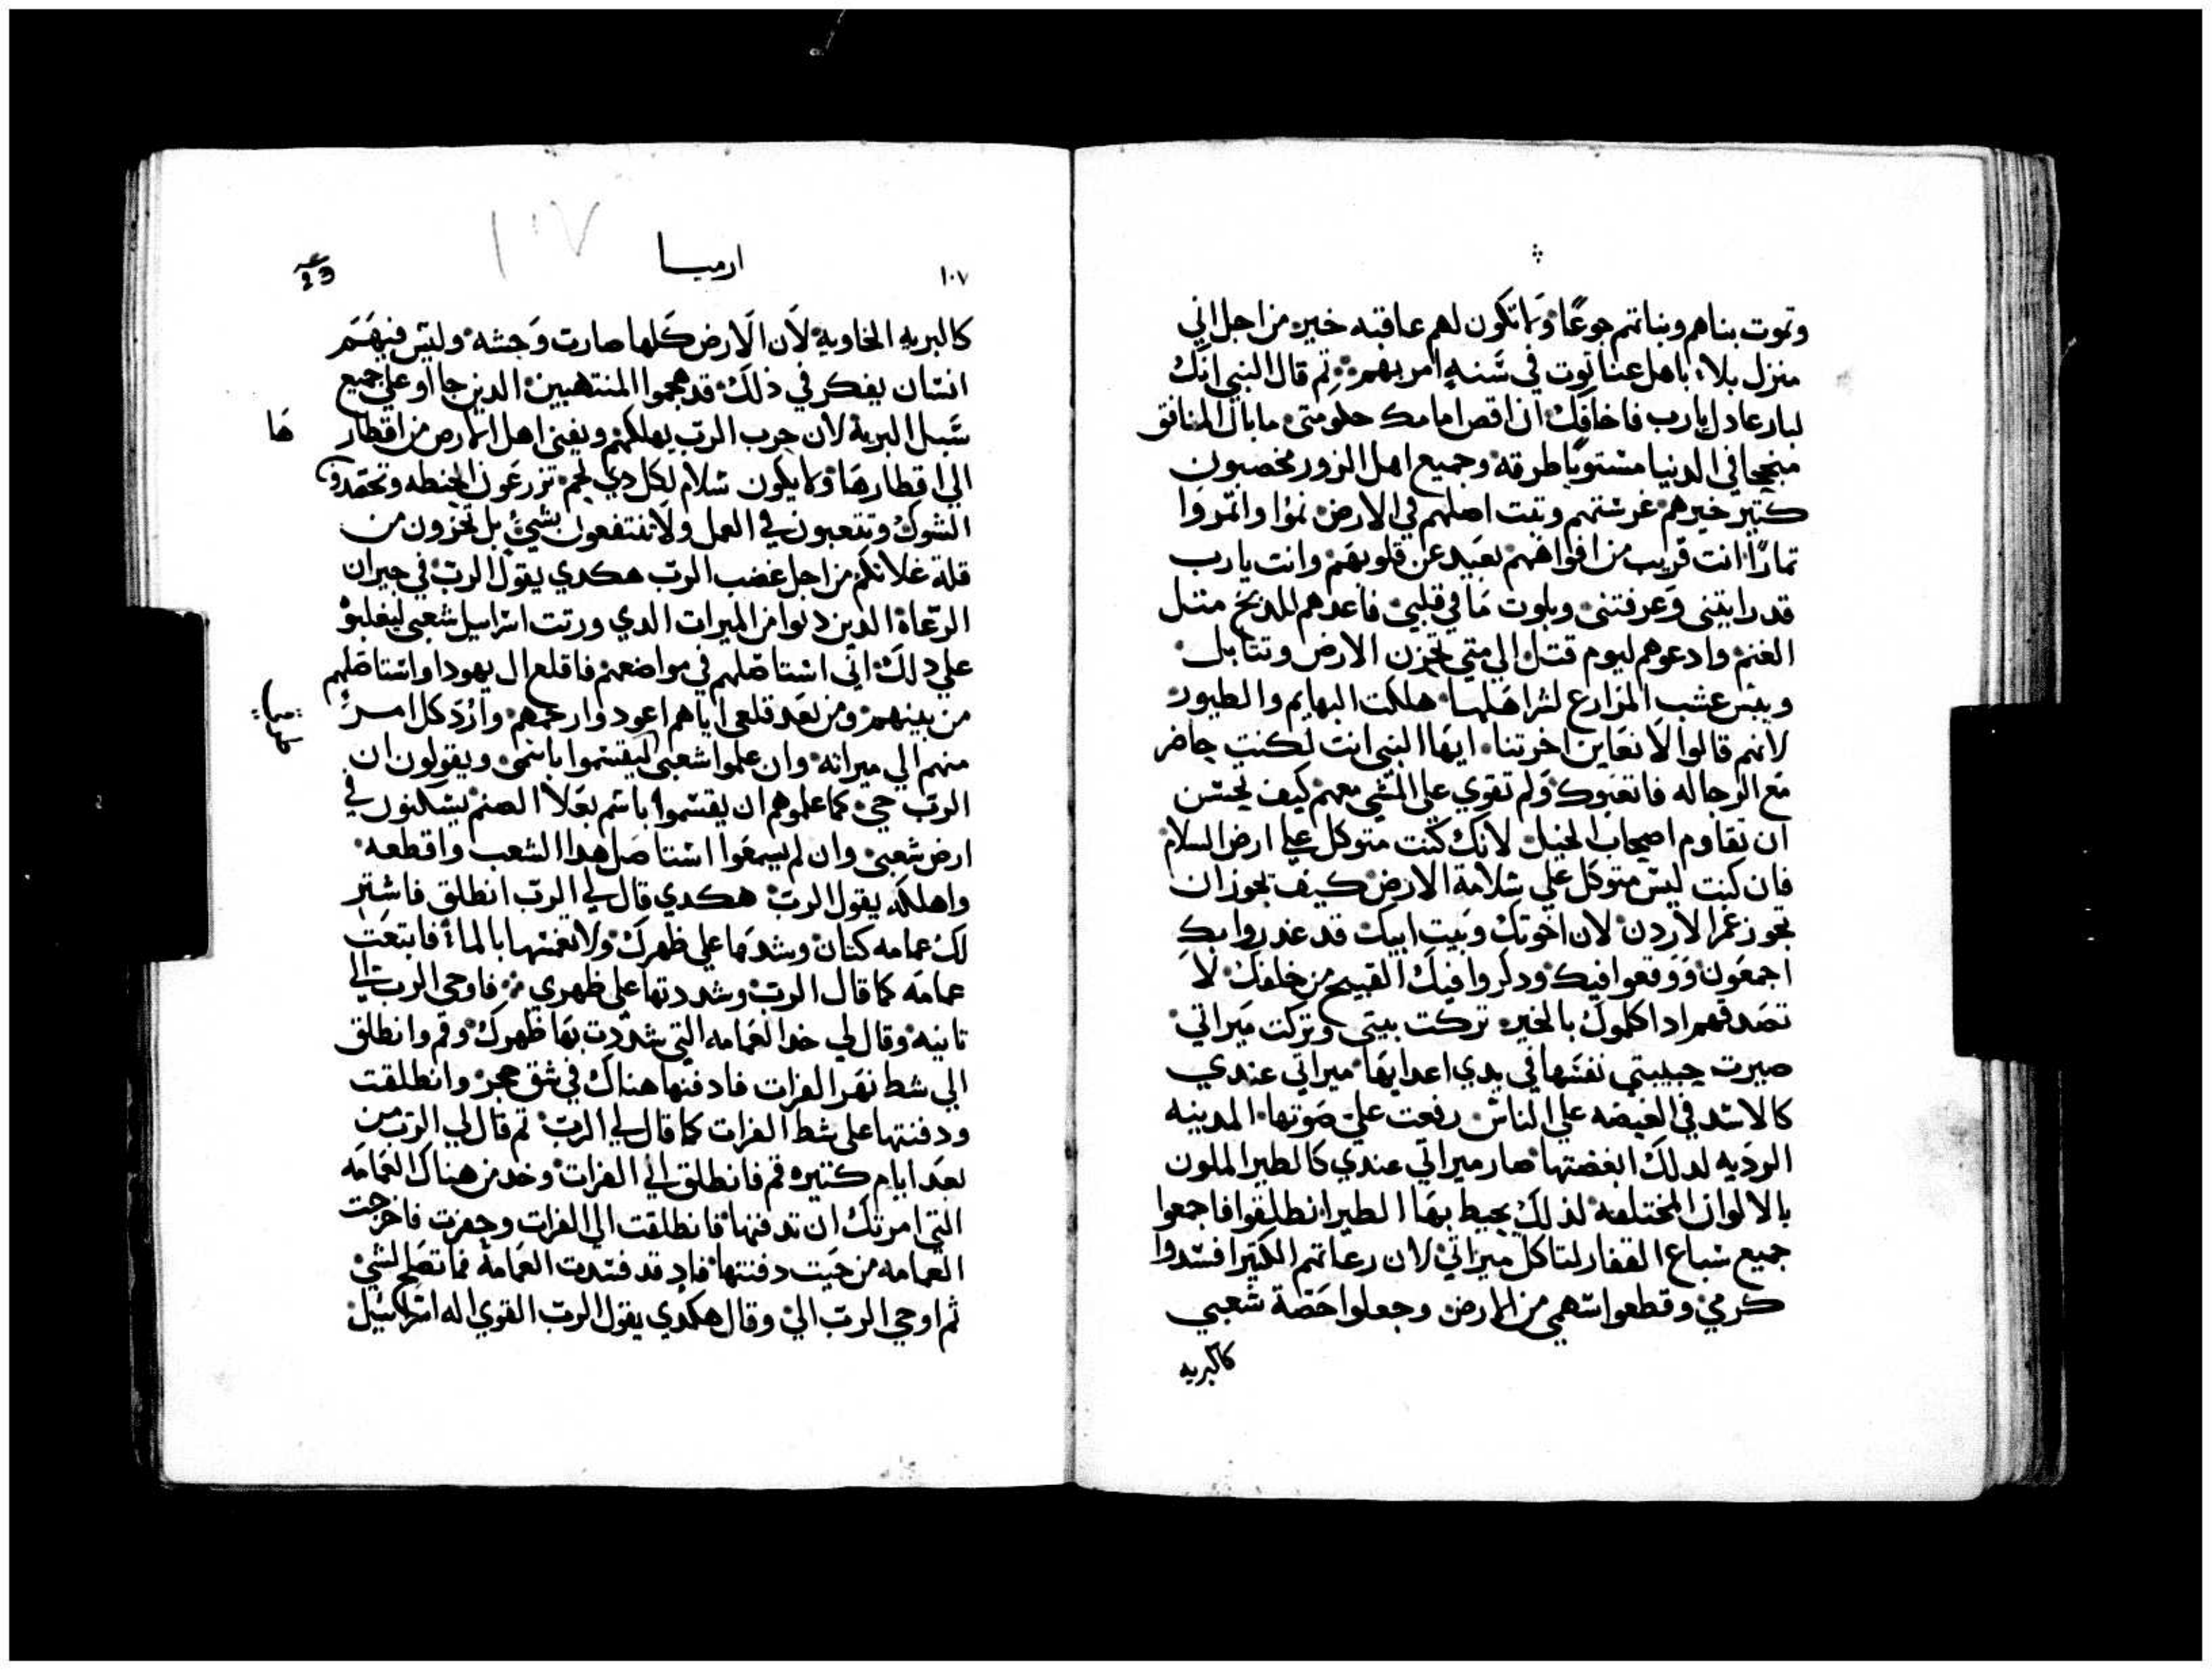 وتموت بناهم وبناتهم جوعًا ولا تكون لهم عاقبه خير من اجل اني
منزل بلاء باهل عناتوت في سنه امر بهم ثم قال النبي انك
لبار عادل يارب فاخافك ان اقص امامك حكومتي ما بال المنافق
منجحا في الدنيا مستويا طرقه وجميع اهل الزور مخصبون
كتير خيرهم غرستهم وتبت اصلهم في الارض نموا واتمروا
تمارًا انت قريب من افواههم بعيد عن قلوبهم وانت يارب
قد رايتني وعرفتني وبلوت ما في قلبي فاعدهم للدبح متل
الغنم وادعوهم ليوم قتل الي متي تحزن الارض وتتابل
ويبس عشب المزارع لشر اهلها هلكت البهايم والطيور
لانهم قالوا لا نعاين اخرتنا ايها النبي انت لكنت حاضر
مع الرجاله فاتعبوك ولم تقوي علي المشي معهم كيف تحسن
ان تقاوم اصحاب الخيل لانك كنت متوكل علي ارض السلام
فان كنت ليس متوكل علي سلامة الارض كيف تجوز ان
تجوز غمر الاردن لان اخوتك وبيت ابيك قد غدروا بك
اجمعون ووقعوا فيك ودكروا فيك القبيح من خلفك لا
تصدقهم اذا كلموك بالخير تركت بيتي وتركت ميراتي
صيرت حبيبتي نفسها في يدي اعدايها ميراتي عندي
كالاسد في الغيضه علي الناس رفعت علي صوتها المدينه
الرديه لدلك ابغضتها صار ميراتي عندي كالطير الملون
بالالوان المختلفه لذلك يحيط بها الطير انطلقوا فاجمعوا
جميع سباع القفار لتاكل ميراتي لان رعاتهم الكتير افسدوا
كرمي وقطعوا سهمي من الارض وجعلوا حصة شعبي
كالبريه
١٠٧
ارميا
23
كالبريه الخاويه لان الارض كلها صارت وحشه وليس فيهم
انسان يفكر في ذلك قد هجموا المنتهبين الدين جااو علي جميع
سبل البريه لان حرب الرب يهلكهم ويفني اهل الارض من اقطار
ها
الي اقطارها ولا يكون سلام لكل دي لحم تزرعون الحنطه وتحصدون
الشوك وتتعبون في العمل ولا تنتفعون بشي بل تخزون من
قلة غلاتكم من اجل غضب الرب هكدي يقول الرب في جيران
الرعاة الدين دنوا من الميرات الدي ورتت اسراييل شعبي ليغلبو
علي دلك اني استاصلهم في مواضعهم فاقلع ال يهودا واستاصلهم
من بينهم ومن بعد قلعي اياهم اعود وارحمهم وارد كل امر
منهم الي ميراته وان علموا شعبي ليقسموا باسمي ويقولون ان
الرب حي كما علموهم ان يقسموا باسم بعلا الصنم يسكنون في
ارض شعبي وان لم يسمعوا استاصل هدا الشعب واقطعه
واهلكه يقول الرب هكدي قال لي الرب انطلق فاشتر
لك عمامه كتان وشدها علي ظهرك ولا تغمسها بالما فابتعت
عمامه كما قال الرب وشددتها علي ظهري فاوحي الرب الي
تانيه وقال لي خد العمامه التي شددت بها ظهرك وقم وانطلق
الي شط نهر الفرات فادفنها هناك في شق حجر وانطلقت
ودفنتها علي شط الفرات كما قال لي الرب تم قال لي الرب من
بعد ايام كتيره قم فانطلق الي الفرات وخد من هناك العمامه
التي امرتك ان تدفنها فانطلقت الي الفرات وحفرت فاخرجت
العمامه من حيت دفنتها فاد قد فسدت العمامه فما تصلح لشي
ثم اوحي الرب الي وقال هكدي يقول الرب القوي اله اسراييل